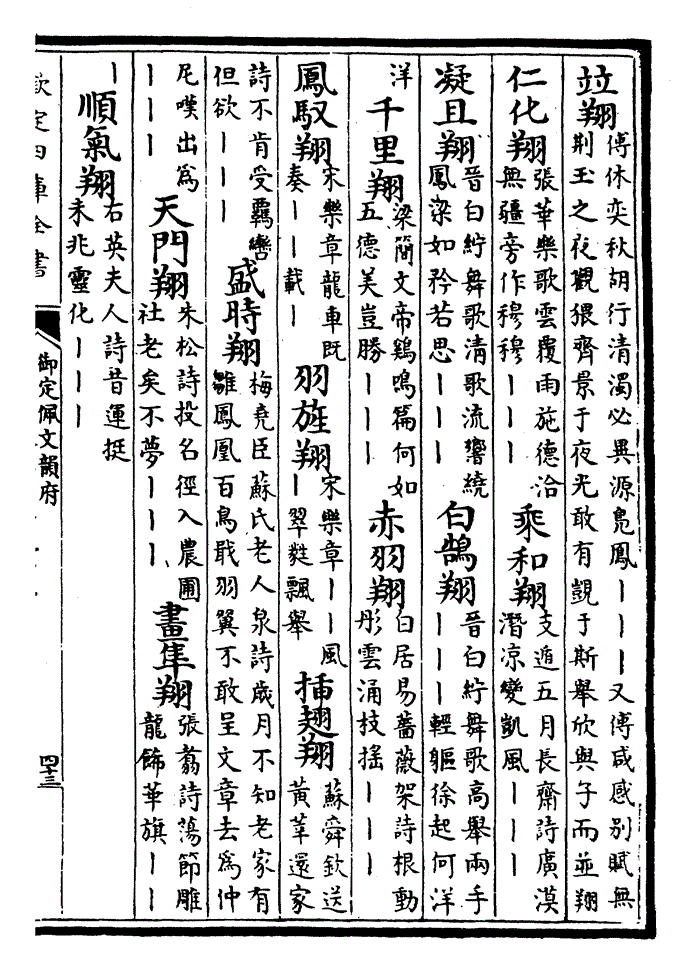 竝翔 傅休奕秋胡行清濁必異源鳧鳳｜｜｜又傅咸感別賦無
荆玉之夜觀猥齊景于夜光敢有覬于斯舉欣與子而並翔
仁化翔 張華樂歌雲覆雨施德洽
無疆旁作穆穆｜｜｜
乘和翔 支遁五月長齋詩廣漠
潛凉變凱風｜｜｜
凝且翔 晉白紵舞歌清歌流響繞
鳳梁如矜若思｜｜｜
白鵠翔 晉白紵舞歌高舉兩手
｜｜｜輕軀徐起何洋
洋
千里翔 梁簡文帝鷄鳴篇何如
五德美豈勝｜｜｜
赤羽翔 白居易薔薇架詩根動
彤雲涌枝搖｜｜｜
鳳馭翔 宋樂章龍車既
奏｜｜載｜
羽旌翔 宋樂章｜｜風
｜翠蕤飄舉
插翅翔 蘇舜欽送
黄莘還家
詩不肯受羈轡
但欲｜｜｜
盛時翔 梅堯臣蘇氏老人泉詩歲月不知老家有
雛鳳凰百鳥戢羽翼不敢呈文章去爲仲
尼嘆出爲
｜｜｜
天門翔 朱松詩投名徑入農圃
社老矣不夢｜｜｜
畫隼翔 張翥詩蕩節雕
龍飾華旗｜｜
｜
順氣翔 右英夫人詩昔運挺
未兆靈化｜｜｜
欽定四庫全書
御定佩文韻府
四十三